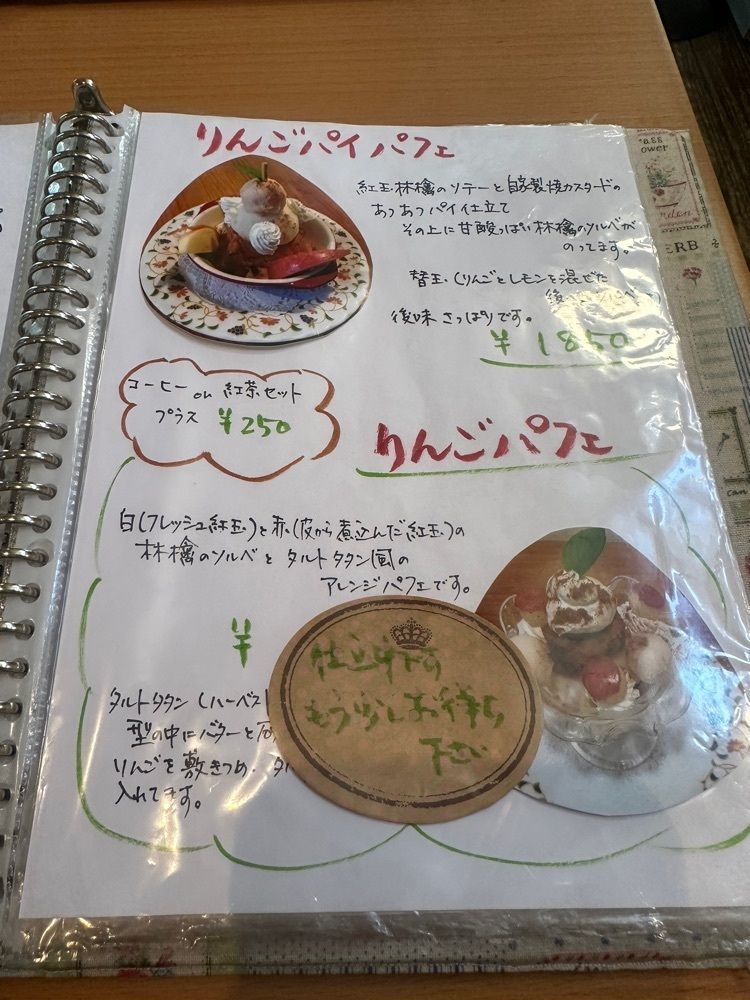 りんごパイパフェ
紅玉林檎のソテーと自家製焼カスタードの
あつあつパイ仕立て
その上に甘酸っぱい林檎のソルベが
のってます。
替玉(りんごとレモンを混ぜた
後味さっぱりです。
¥1850
コーヒー or 紅茶セット
プラス ¥250
りんごパフェ
白(フレッシュ紅玉)と赤(皮から煮込んだ紅玉)の
林檎のソルベとタルトタタン風の
アレンジパフェです。
¥
仕込中です
もう少しお待ち
下さい
タルトタタン(ハーベスト
型の中にバターと
りんごを敷きつめ、タ
入れてます。
ERB